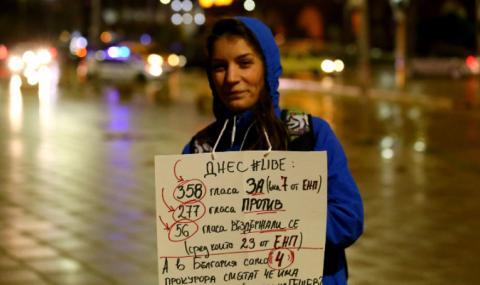 ДНЕС #LIBE:
358 гласа ЗА (вкл 7 от ЕНП)
277 гласа ПРОТИВ
56 гласа ВЪЗДЪРЖАЛИ СЕ
(сред които 23 от ЕНП)
А в България само 4
ПРОКУРОРА СМЯТАТ ЧЕ ИМА